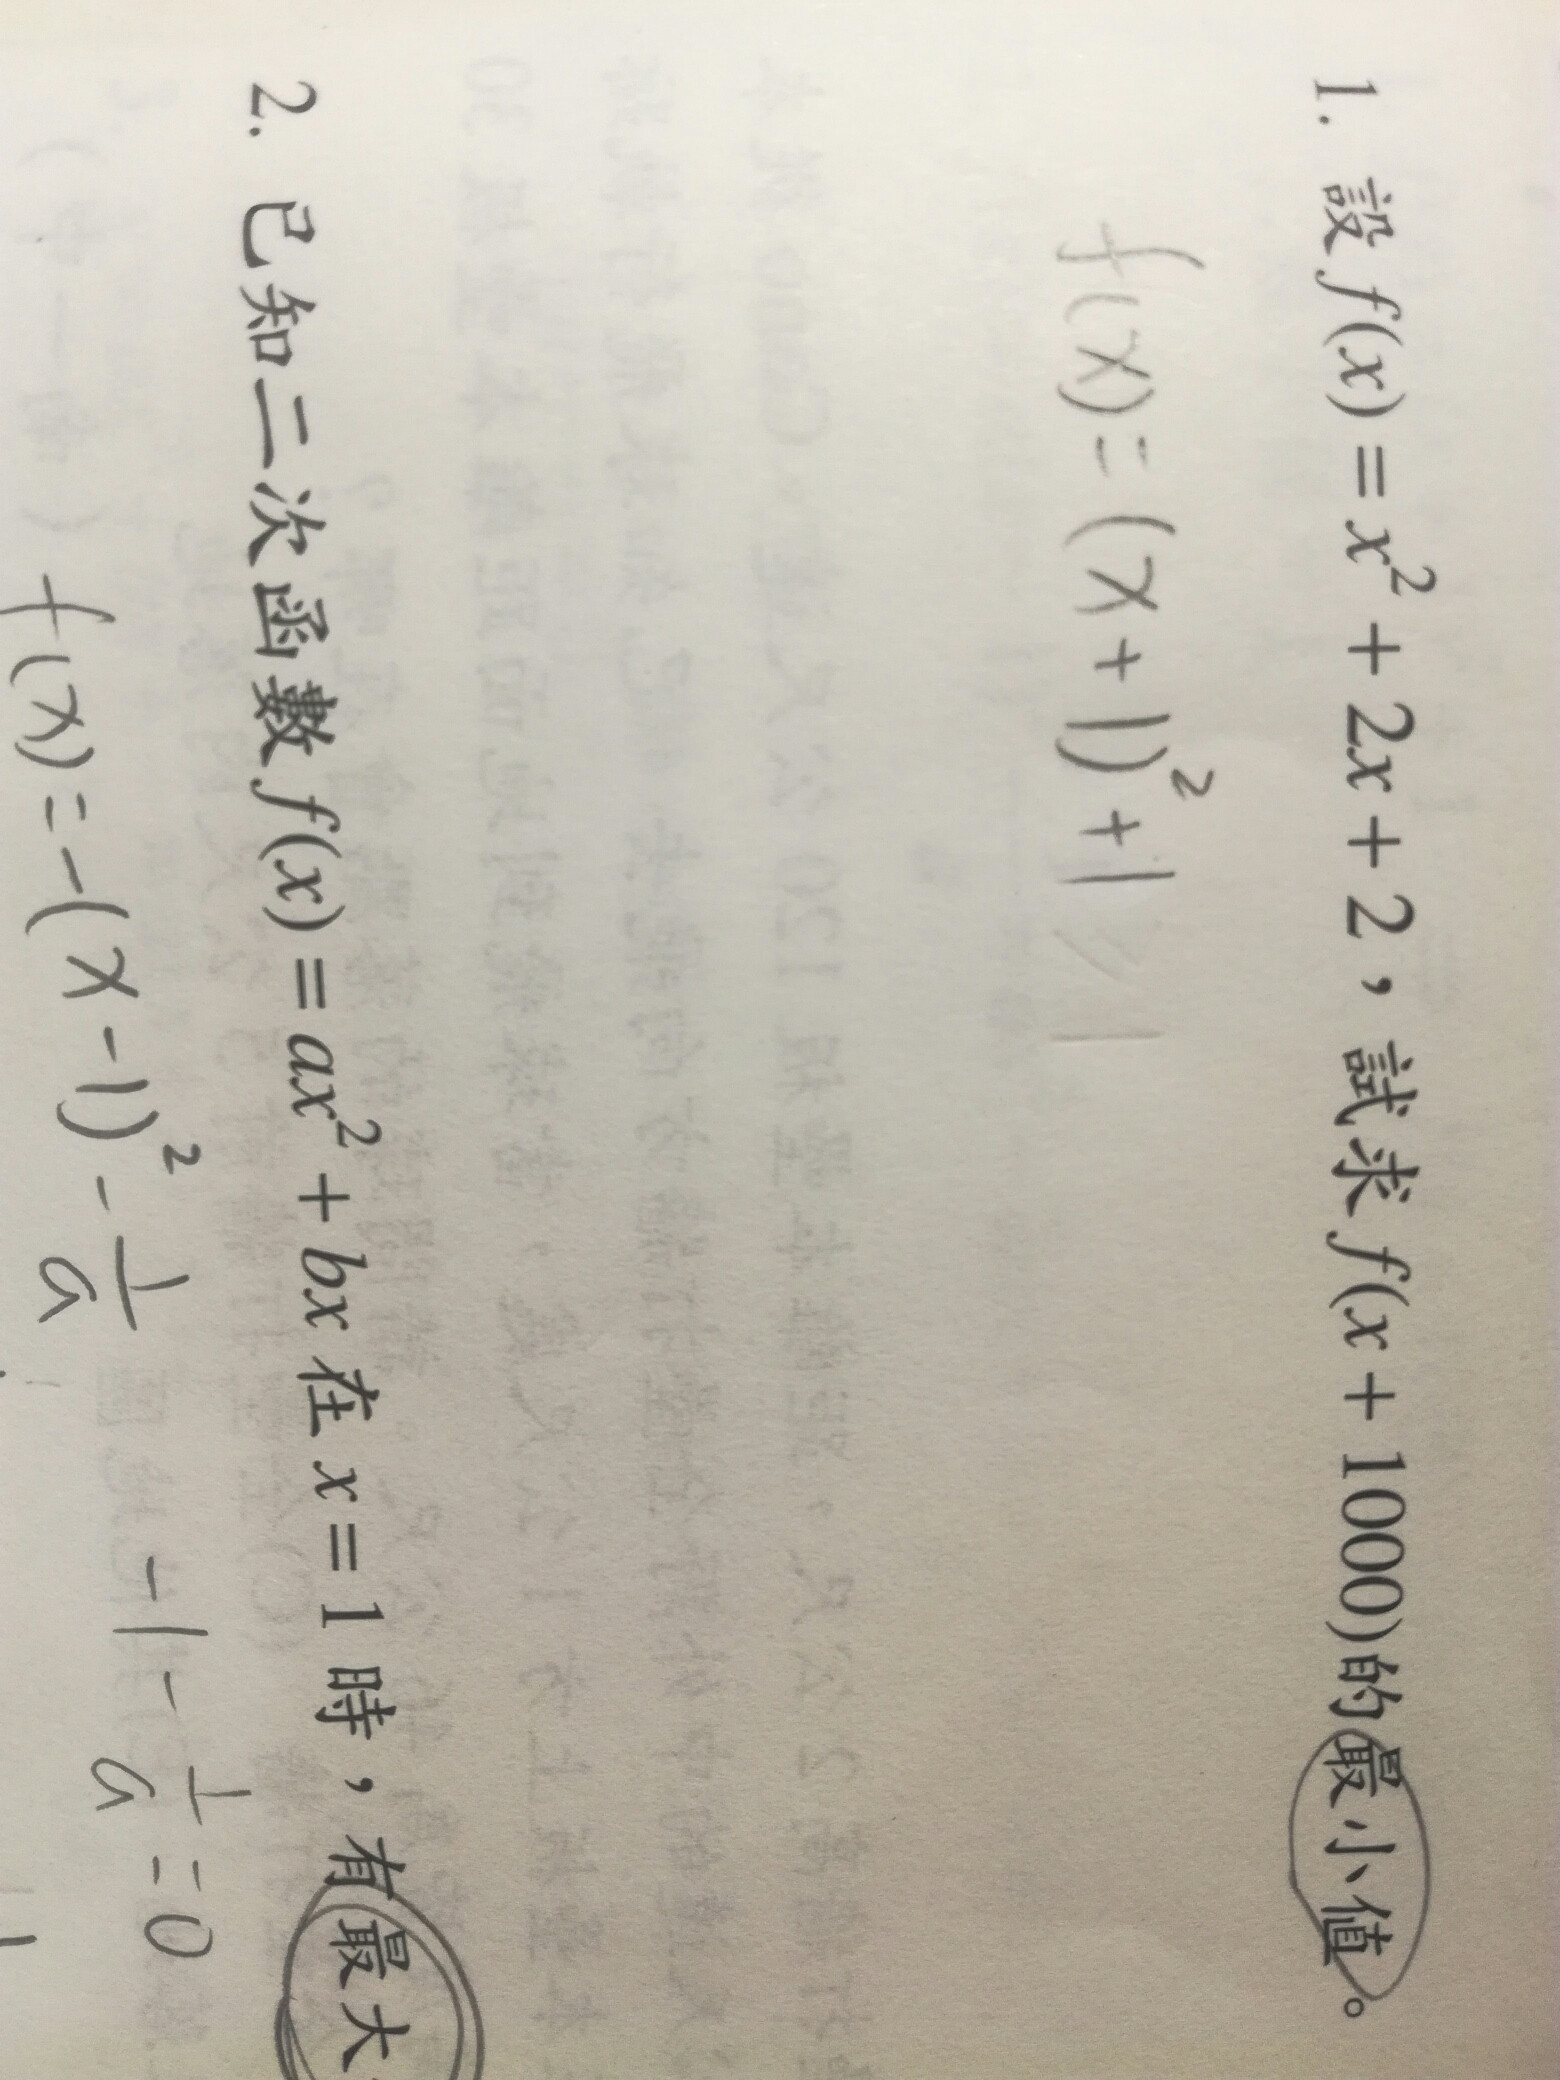 1. 設 f(x) = x² + 2x + 2，試求 f(x + 1000)的最小值。
f(x) = (x + 1)² + 1 ≥ 1
2. 已知二次函數 f(x) = ax² + bx 在 x = 1 時，有最大
f(x) = -(x - 1)² - 1/a   -1 - 1/a = 0